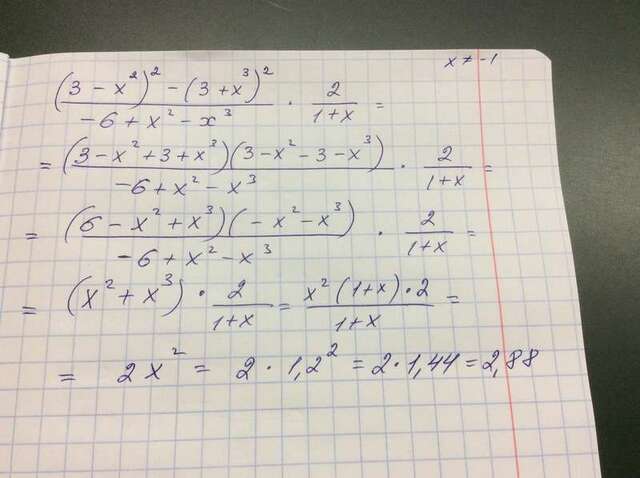 x ≠ -1
((3 - x²)² - (3 + x³)²)/(-6 + x² - x³) · 2/(1+x) =
= ((3 - x² + 3 + x³)(3 - x² - 3 - x³))/(-6 + x² - x³) · 2/(1+x) =
= ((6 - x² + x³)(-x² - x³))/(-6 + x² - x³) · 2/(1+x) =
= (x² + x³) · 2/(1+x) = (x²(1+x)·2)/(1+x) =
= 2x² = 2 · 1,2² = 2 · 1,44 = 2,88